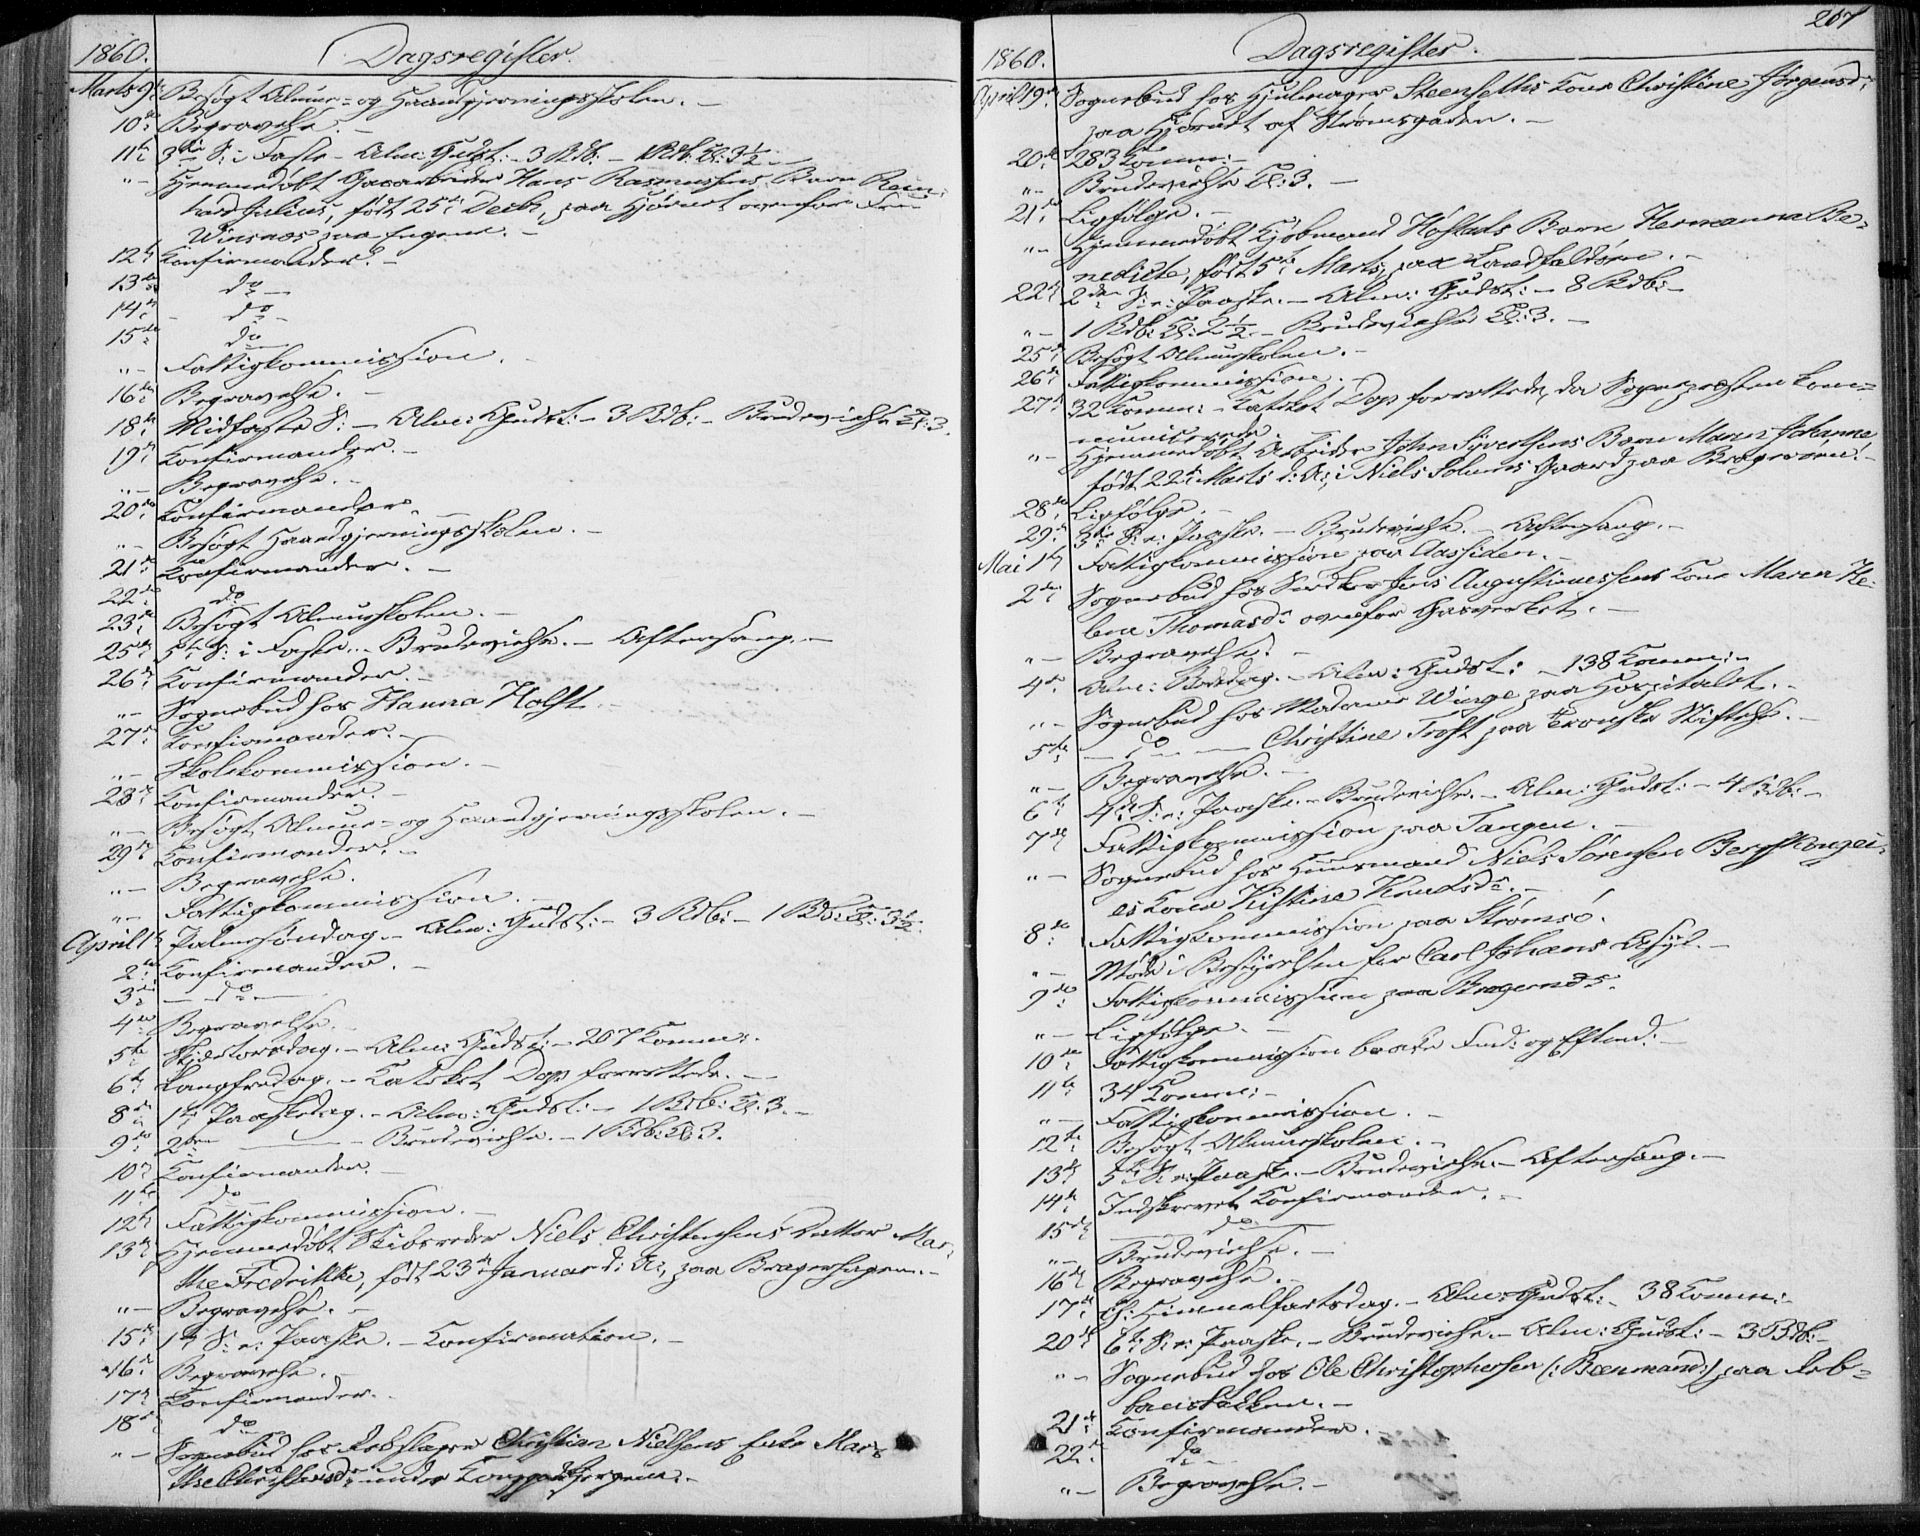 1860.
Dagsregister.
Marts 9de Besøgt Almue- og Haandgjerningsskolen. –
10de Begravelse. –
11te 3die S: i Faste – Alm: Gudst: – 3 Bdb: – 1 Bdb: Kl: 3½ –
"– Hjemmedøbt Gaardarbeider Hans Rasmussens Barn
Julius, født 25de Decbr, paa Hjørnet ovenfor
Winsnæs paa Engene. –
12te Konfirmander. –
13de do –
14de – do –
15de do
"– Fattigkommission.
16de Begravelse. –
18de Midfaste S: – Alm: Gudst: – 3 Bdb: – Brudevielse Kl: 3.
19de Konfirmander. –
"– Begravelse. –
20de Konfirmander. –
"– Besøgt Haandgjerningsskolen. –
21de Konfirmander. –
22de do
23de Besøgt Almueskolen. –
25de 5te S: i Faste. – Brudevielse. – Aftensang. –
26de Konfirmander. –
"– Sognebud hos Hanna Holst.
27de Konfirmander. –
"– Skolekommission. –
28de Konfirmander. –
"– Besøgt Almue- og Haandgjerningsskolen. –
29de Konfirmander. –
"– Begravelse.
"– Fattigkommission. –
April 1ste Palmesøndag. – Alm: Gudst: – 3 Bdb: – 1 Bdb: Kl: 3½.
2den Konfirmander. –
3die – do –
4de Begravelse. –
5te Skjertorsdag. – Alm: Gudst: – 207 Komm:.
6te Langfredag. – Katekat Dop forrettede. –
8de 1ste Paaskedag. – Alm: Gudst: – 1 Bdb: Kl: 3. –
9de 2den – Brudevielse. – 1 Bdb: Kl: 3.
10de Konfirmander. –
11te do
12te Fattigkommission. –
13de Hjemmedøbt Skibsreder Niels Christensens Datter Mar-
the Fredrikke, født 23de Januar d: A:, paa Bragerhagen. –
"– Begravelse. –
15de 1ste S: e: Paaske. – Konfirmation. –
16de Begravelse.
17de Konfirmander. –
18de do
"– Sognebud hos Rebslager Christian Nielsens Enke Mar-
the Christensd: under
1860.
Dagsregister.
207
April 19de Sognebud hos Hjulmager Steenseths Kone Christine Jörgensd:
paa Hjørnet af Strømsgaden. –
20de 283 Komm: –
"– Brudevielse Kl: 3. –
21de Ligfølge. –
"– Hjemmedøbt Kjøbmand Høstads Barn Hermanna Be-
nedicte, født 5te Marts, paa Landfaldøen. –
22de 2den S: e: Paaske. – Alm: Gudst: – 8 Bdb: –
"– 1 Bdb: Kl: 2½ – Brudevielse Kl: 3. –
25de Besøgt Almueskolen. –
26de Fattigkommission. –
27de 32 Komm: – Katekat Dop forrettede, da Sognepresten kom-
municerede.
"– Hjemmedøbt Arbeider John Syvertsens Barn Maren Johanne,
født 22de Marts d: A:, i Niels Solums Gaard paa Bragerøen. –
28de Ligfølge. –
29de 3die S: e: Paaske. – Brudevielse. – Aftensang. –
Mai 1ste Fattigkommission paa Aassiden. –
2den Sognebud hos Snedker Jens Augustinussens Kone Maren He-
lene Thomasd: ovenfor Gasverket. –
"– Begravelse. –
4de Alm: Bededag. – Alm: Gudst: – 138 Komm: –
"– Sognebud hos Madame Winge paa Hospitalet. –
5te – do – Christine Trost paa Stiftelse. –
"– Begravelse. –
6te 4de S: e: Paaske. – Brudevielse. – Alm: Gudst: – 4 Bdb: –
7de Fattigkommission paa Tangen. –
"– Sognebud hos Huusmand Niels Sörensen Bergskougei-
es Kone Kistine Knudsd: –
8de Fattigkommission paa Strømsö.
"– Møde i Bestyrelsen for Carl Johans Asyl. –
9de Fattigkommission paa Bragernæs.
"– Ligfølge. –
10de Fattigkommission baade Ford: og Efterd: –
11te 34 Komm: –
"– Fattigkommission. –
12te Besøgt Almueskolen. –
13de 5te S: e: Paaske. – Brudevielse. – Aftensang. –
14de Indskrevet Konfirmander. –
15de – do –
"– Brudevielse. –
16de Begravelse. –
17de Ch: Himmelfartsdag. – Alm: Gudst: – 38 Komm: –
20de 6te S: e: Paaske. – Brudevielse. – Alm: Gudst: – 3 Bdb: –
"– Sognebud hos Ole Christophersen (: Beenmand :) paa Feb-
21de Konfirmander. –
22de do –
"– Begravelse. –